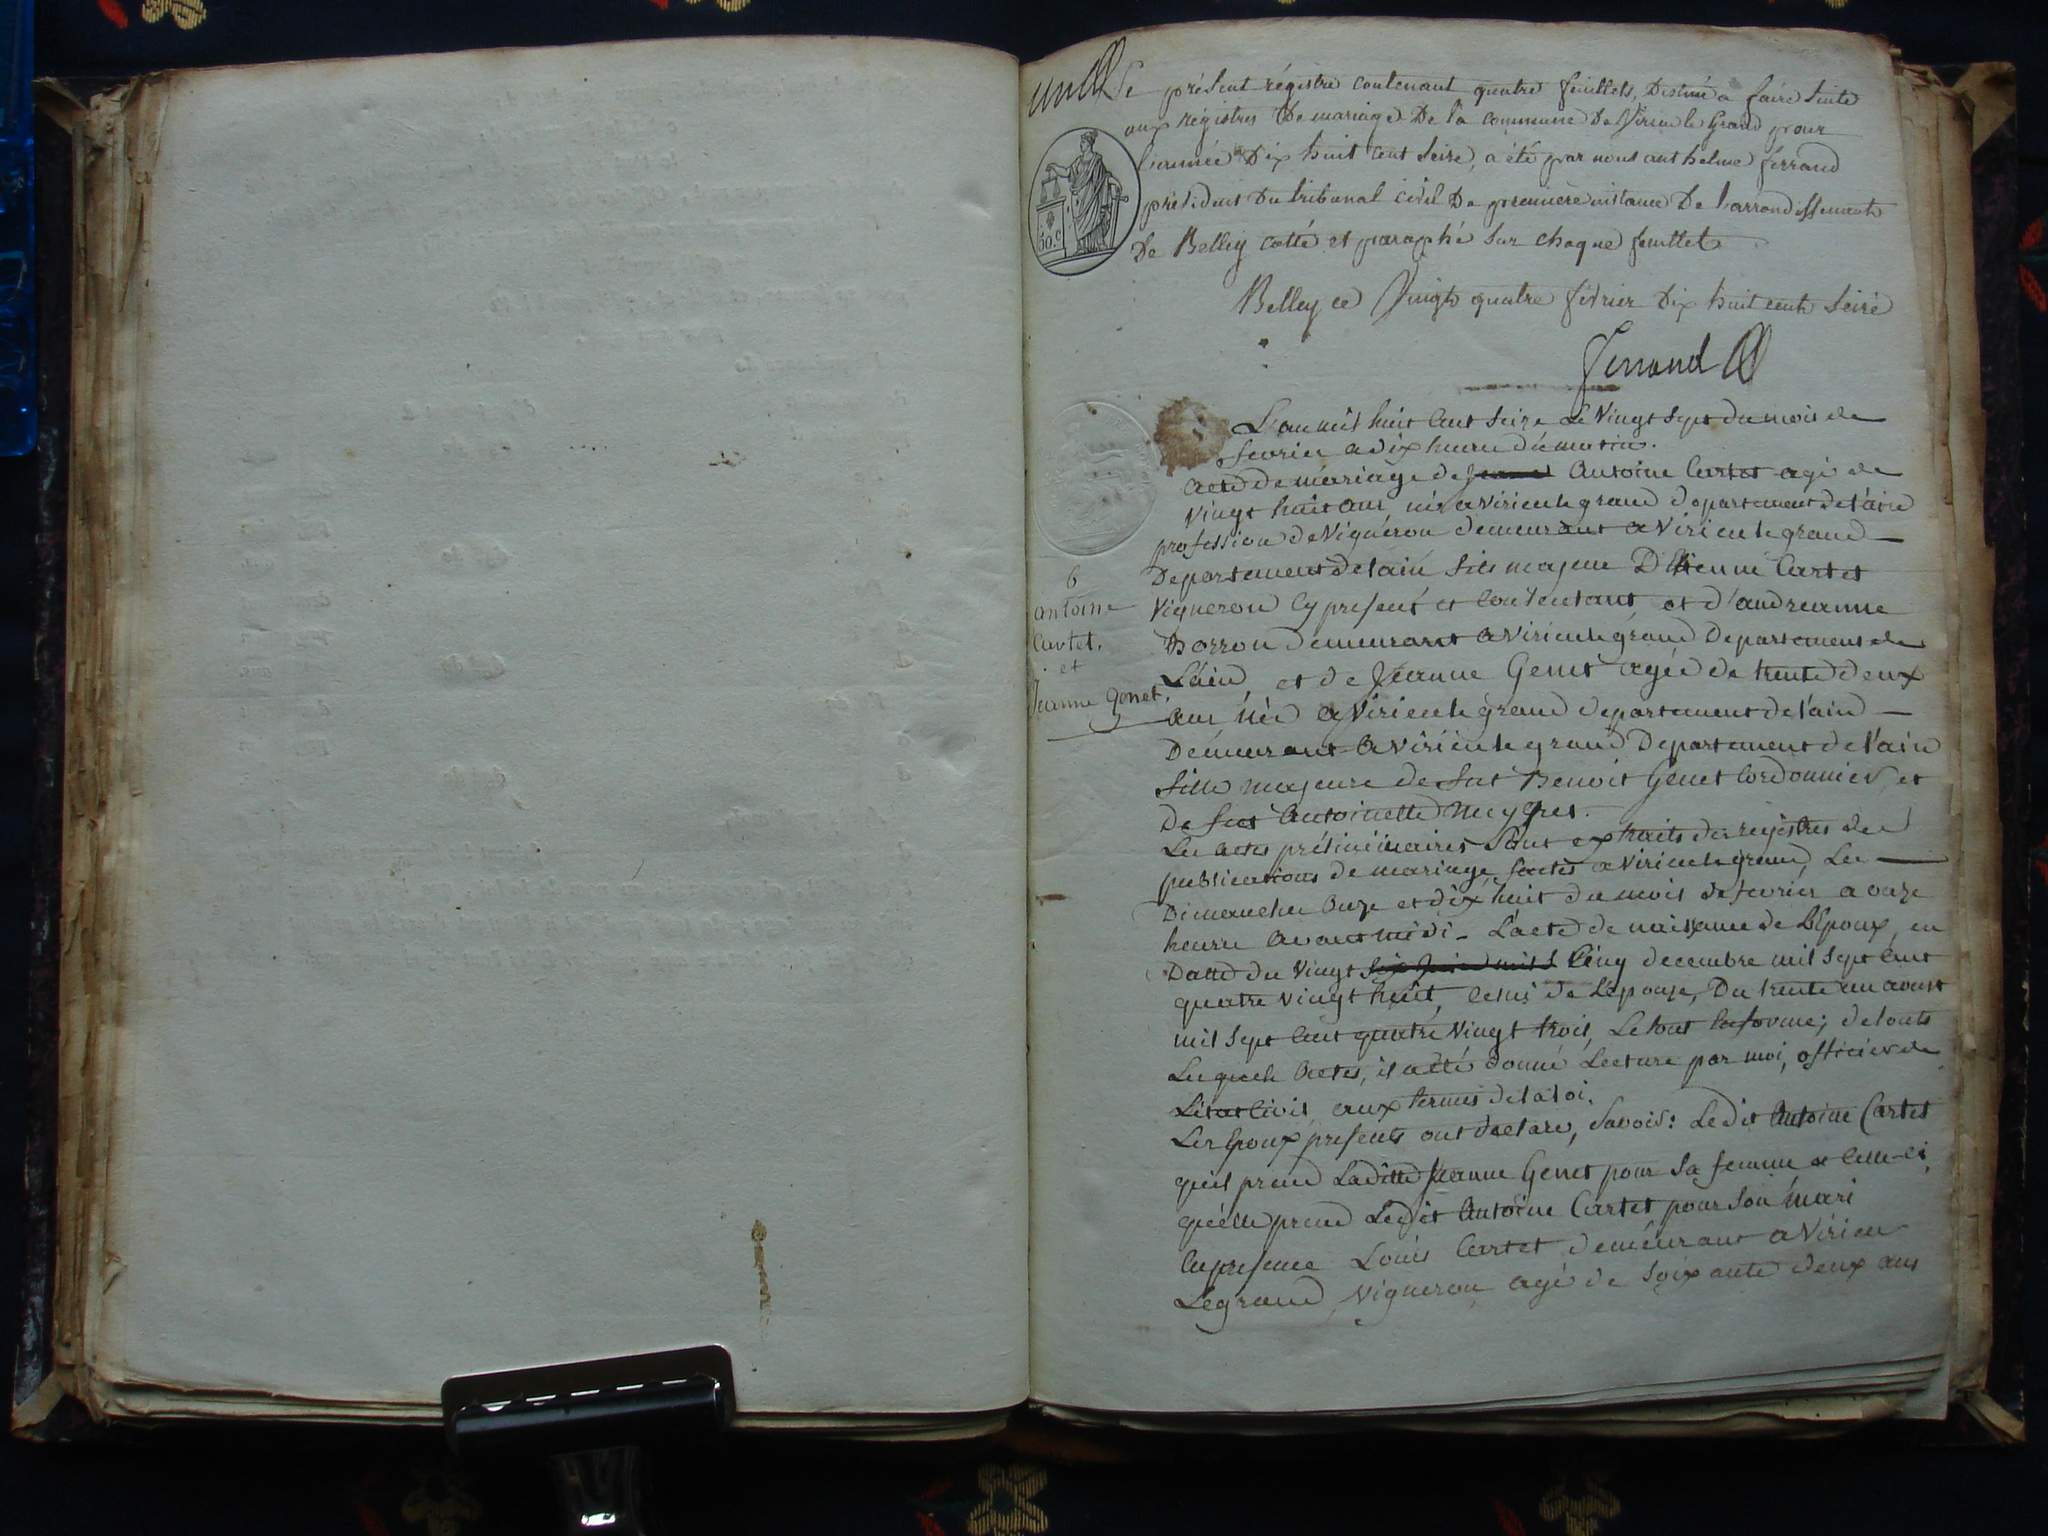 un
Le présent régistre contenant quatre feuillets, Destiné a faire Suite
aux régistres De mariage De la commune De Virieu le Grand pour
l'année Dix huit cent Seize, a été par nous anthelme ferrand
président Du tribunal civil De première instance De l'arrondissement
De Belley cotté et paraphé Sur chaque feuillet
50.c
Belley ce Vingt quatre février Dix huit cent Seize
Ferrand
L'an mil huit Cent Seize Le Vingt Sept du mois de
fevrier a dix heure du matin.
acte de mariage de Antoine Cartet agé de
vingt huit ans né a Virieu le grand departement de l'ain
profession de Vignéron demeurant a Virieu le grand
Departement de l'ain fils majeur D'Etienne Cartet
Vigneron Cy present et Consentant, et d'andreanne
Borron demeurant a Virieu le grand Departement de
L'ain, et de Jeanne Genet agée de trente deux
ans née a Virieu le grand departement de l'ain
Demeurant a Virieu le grand Departement de l'ain
fille majeure de fut Benoit Genet Cordonnier, et
De fut Antoinette
6
antoine
Cartet.
et
Jeanne Genet.
Les actes préliminaires Sont extraits des registres de
publications de mariage, faites a Virieu le grand, Les
Dimanches Onze et dix huit du mois de fevrier a onze
heure avant midi - L'acte de naissance de L'Epoux, en
Datte du Vingt Cinq decembre mil Sept Cent
quatre vingt huit, Celui de L'epouse, Du trente un aoust
mil Sept Cent quatre Vingt trois, Le tout en forme; de touts
Les quels Actes, il a été donné Lecture par moi, officier de
L'état Civil, aux termes de la loi.
Les Epoux presents ont declaré, Savoir: Le dit Antoine Cartet
qu'il prend La ditte Jeanne Genet pour Sa femme & Celle-Ci
qu'elle prend Le dit Antoine Cartet pour Son mari
En presence Louis Cartet, demeurant a Virieu
Le grand, Vigneron agé de Soixante deux ans